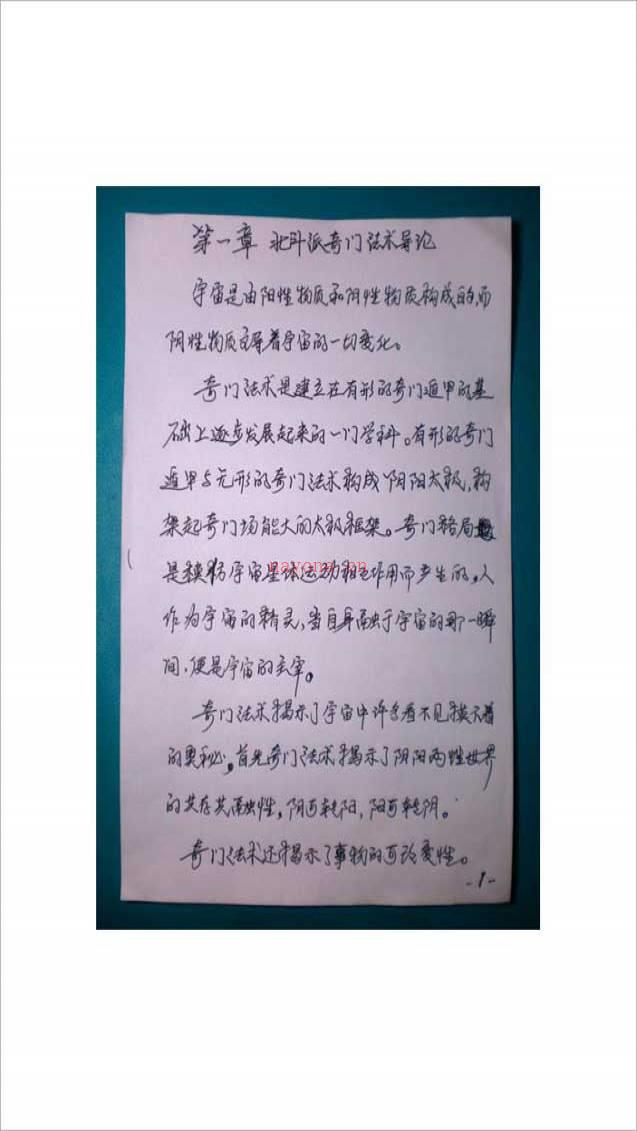 第一章 北斗派奇门法术导论
宇宙是由阳性物质和阴性物质构成的,而
阴性物质主导着宇宙的一切变化。
奇门法术是建立在有形的奇门遁甲的基
础上逐步发展起来的一门学科。有形的奇门
遁甲与无形的奇门法术构成阴阳太极,构
架起奇门场能大的太极框架。奇门格局
是模仿宇宙星体运动相互作用而产生的,人
作为宇宙的精灵,当自身融于宇宙的那一瞬
间,便是宇宙的主宰。
奇门法术揭示了宇宙中许多看不见摸不着
的奥秘,首先奇门法术揭示了阴阳两性世界
的共存共融性,阴可转阳,阳可转阴。
奇门法术还揭示了事物的可变性。
-1-
nayona.cn